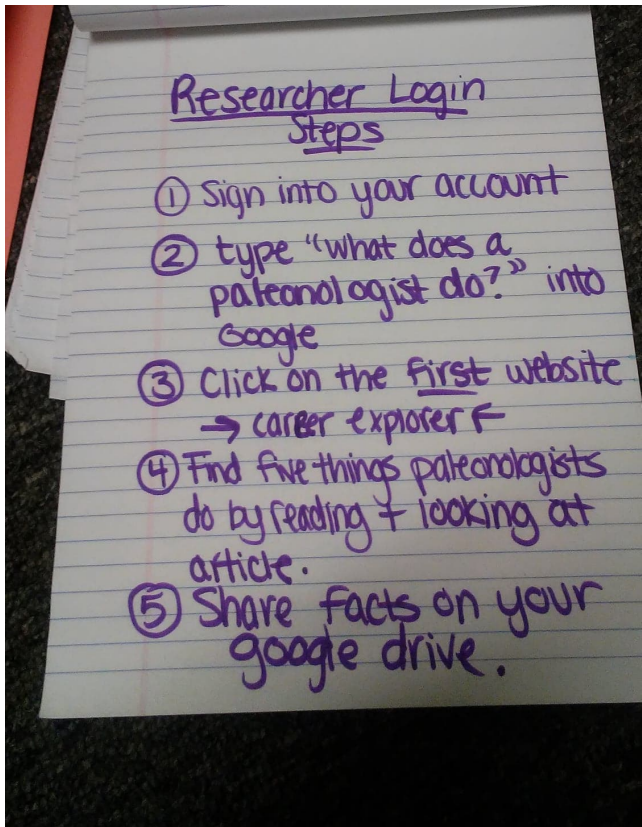 Researcher Login
Steps
① Sign into your account
② type "what does a
paleonologist do?" into
Google
③ Click on the first website
→ career explorer ←
④ Find five things paleonologists
do by reading + looking at
article.
⑤ Share facts on your
google drive.